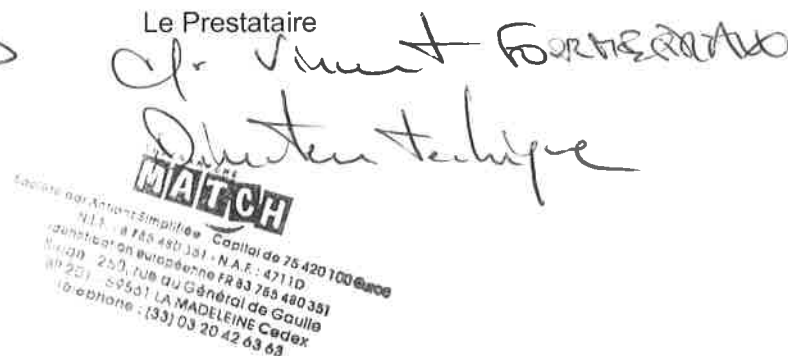 Le Prestataire
Vincent
Directeur technique
MATCH
Société par Actions Simplifiée Capital de 75 420 100 euros
785 480 351 - N.A.F. : 4711D
Identification européenne FR 83 785 480 351
250, rue du Général de Gaulle
59561 LA MADELEINE Cedex
Téléphone : (33) 03 20 42 63 63